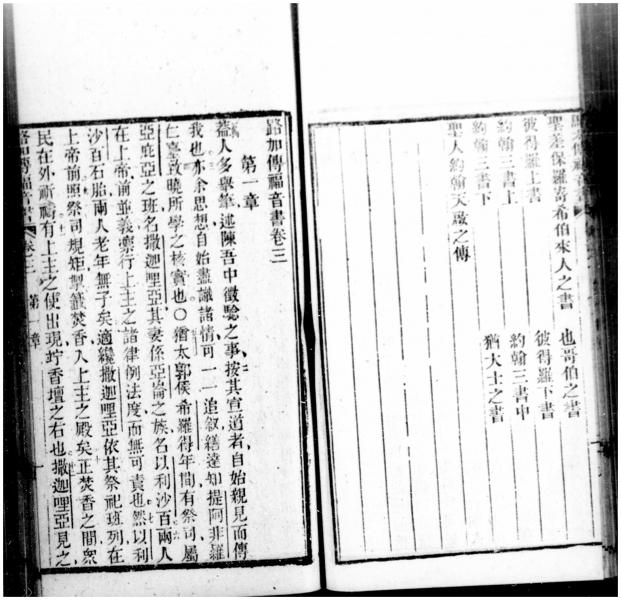 聖差保羅寄希伯來人之書 也哥伯之書
彼得羅上書 彼得羅下書
約翰三書上 約翰三書中
約翰三書下 猶大士之書
聖人約翰天啟之傳
路加傳福音書卷三
第一章
蓋人多舉筆述陳吾中徵驗之事、按其宣道者、自始親見而傳
我也、亦余思想自始盡識諸情、可一一追叙繕達知提阿非羅
仁臺致曉所學之核實也〇猶太郭侯希羅得年間有祭司屬
亞庇亞之班名撒迦哩亞其妻係亞倫之族名以利沙百兩人
在上帝前並義、行上主之諸律例法度而無可責也、然以利
沙百石胎、兩人老年無子矣、適纔撒迦哩亞依其祭祀班列在
上帝前照祭司規矩掣籤焚香入上主之殿矣、正焚香之間、衆
民在外祈禱、有上主之使出現竚香壇之右也、撒迦哩亞見之、
路加傳福音書 卷三 第一章